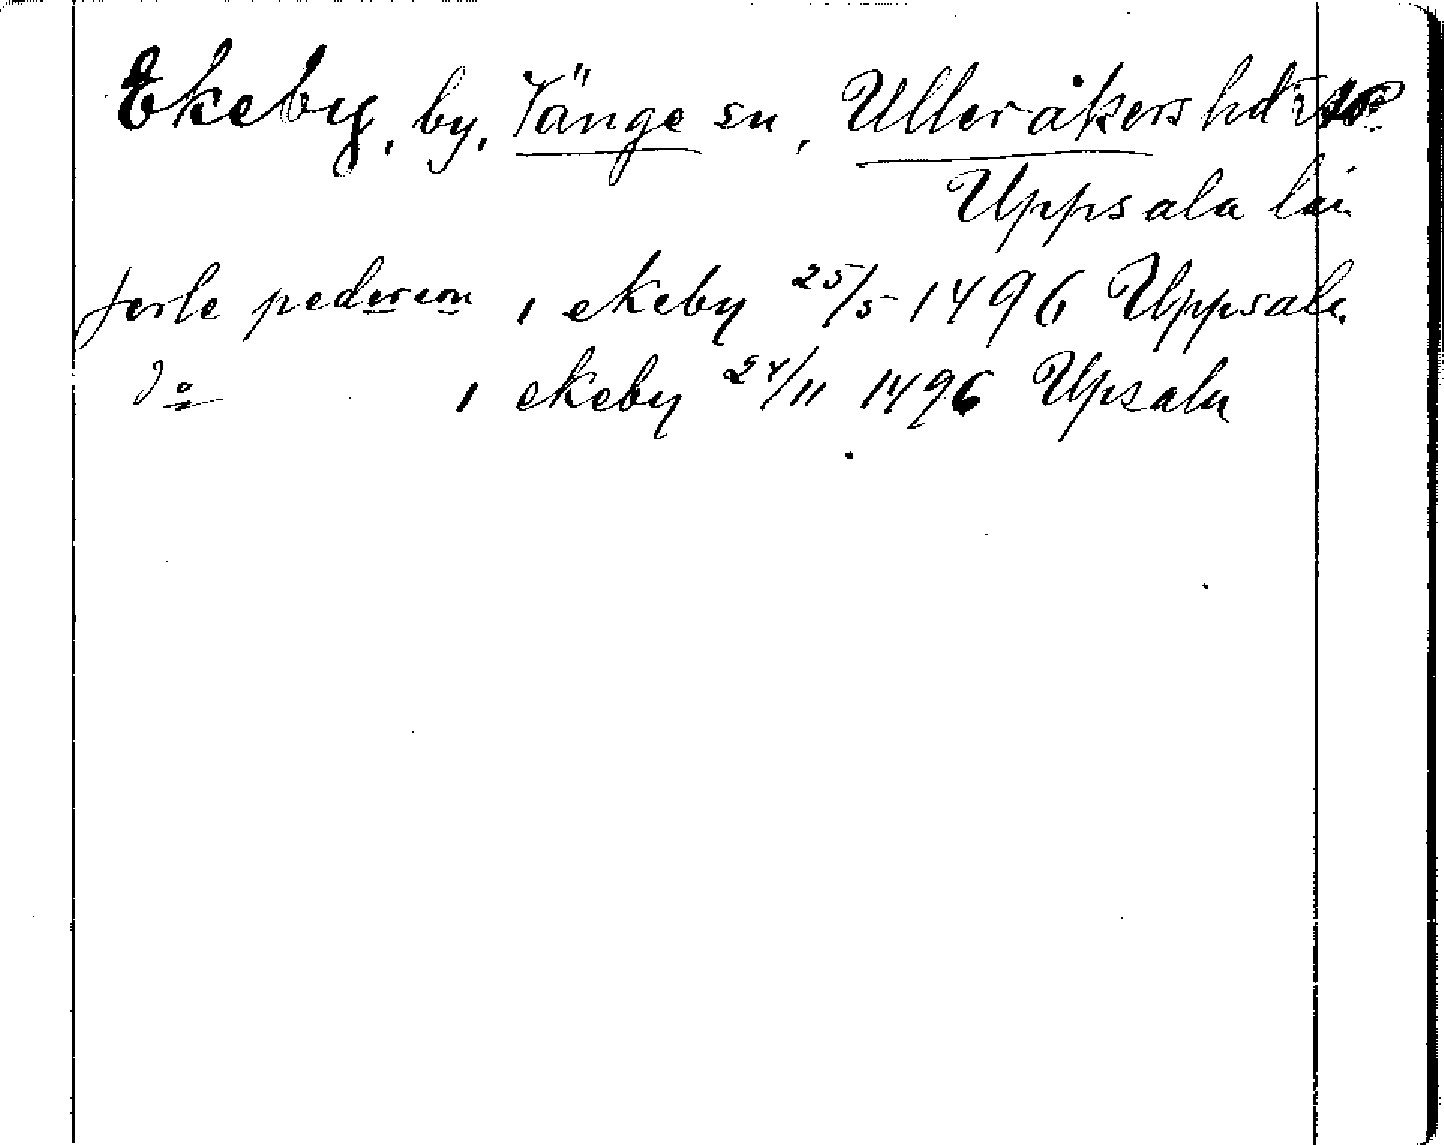 Ekeby, by, Jänge sn, Ulleråkers hd
Uppsala län
Jerle pederson i ekeby 25/5 1496 Uppsala
Do i ekeby 24/11 1496 Upsala